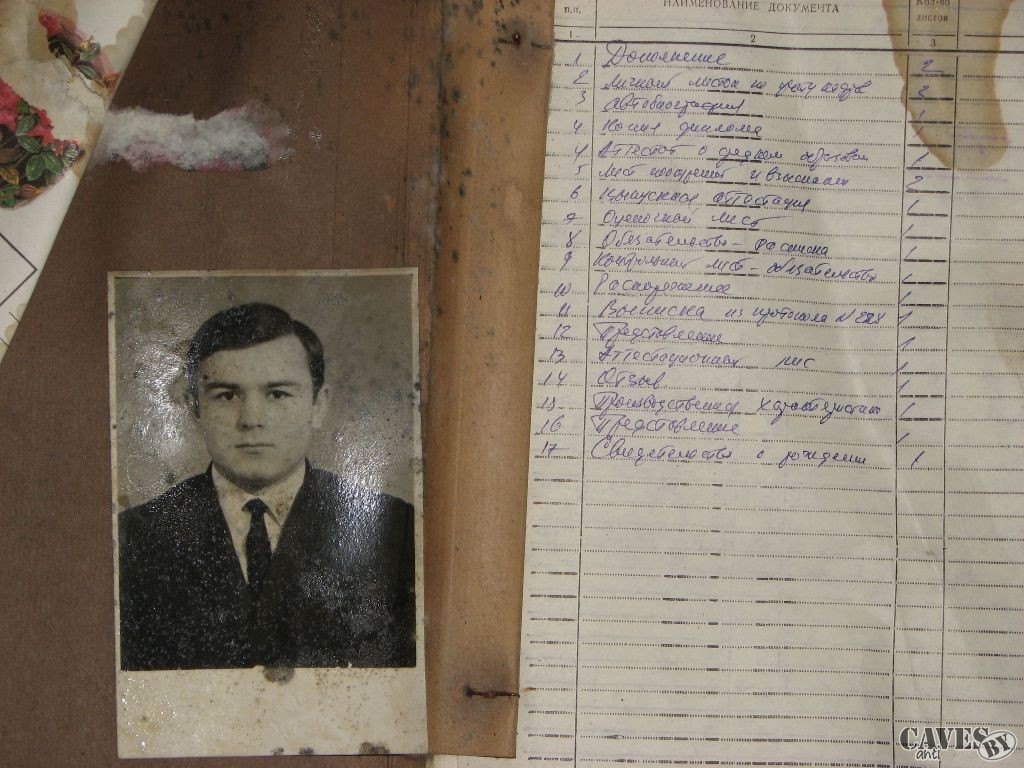 п.п. НАИМЕНОВАНИЕ ДОКУМЕНТА Кол-во листов
1 2 3
1 Дополнение 2
2 Личный листок по учету кадров 3
3 Автобиография 1
4 Копия диплома 1
4 Аттестат о среднем образован 1
5 Лист поощрений и взысканий 2
6 аттестация 1
7 Оценочный лист 1
8 Обязательство - расписка 1
9 Контрольный лист - обязательство 1
10 Распоряжение 1
11 Выписка из протокола N 1
12 Представление 1
13 Аттестационный лис 1
14 Отзыв 1
15 Производственная характеристика 1
16 Представление 1
17 Свидетельство о рождении 1
CAVES
anti BY